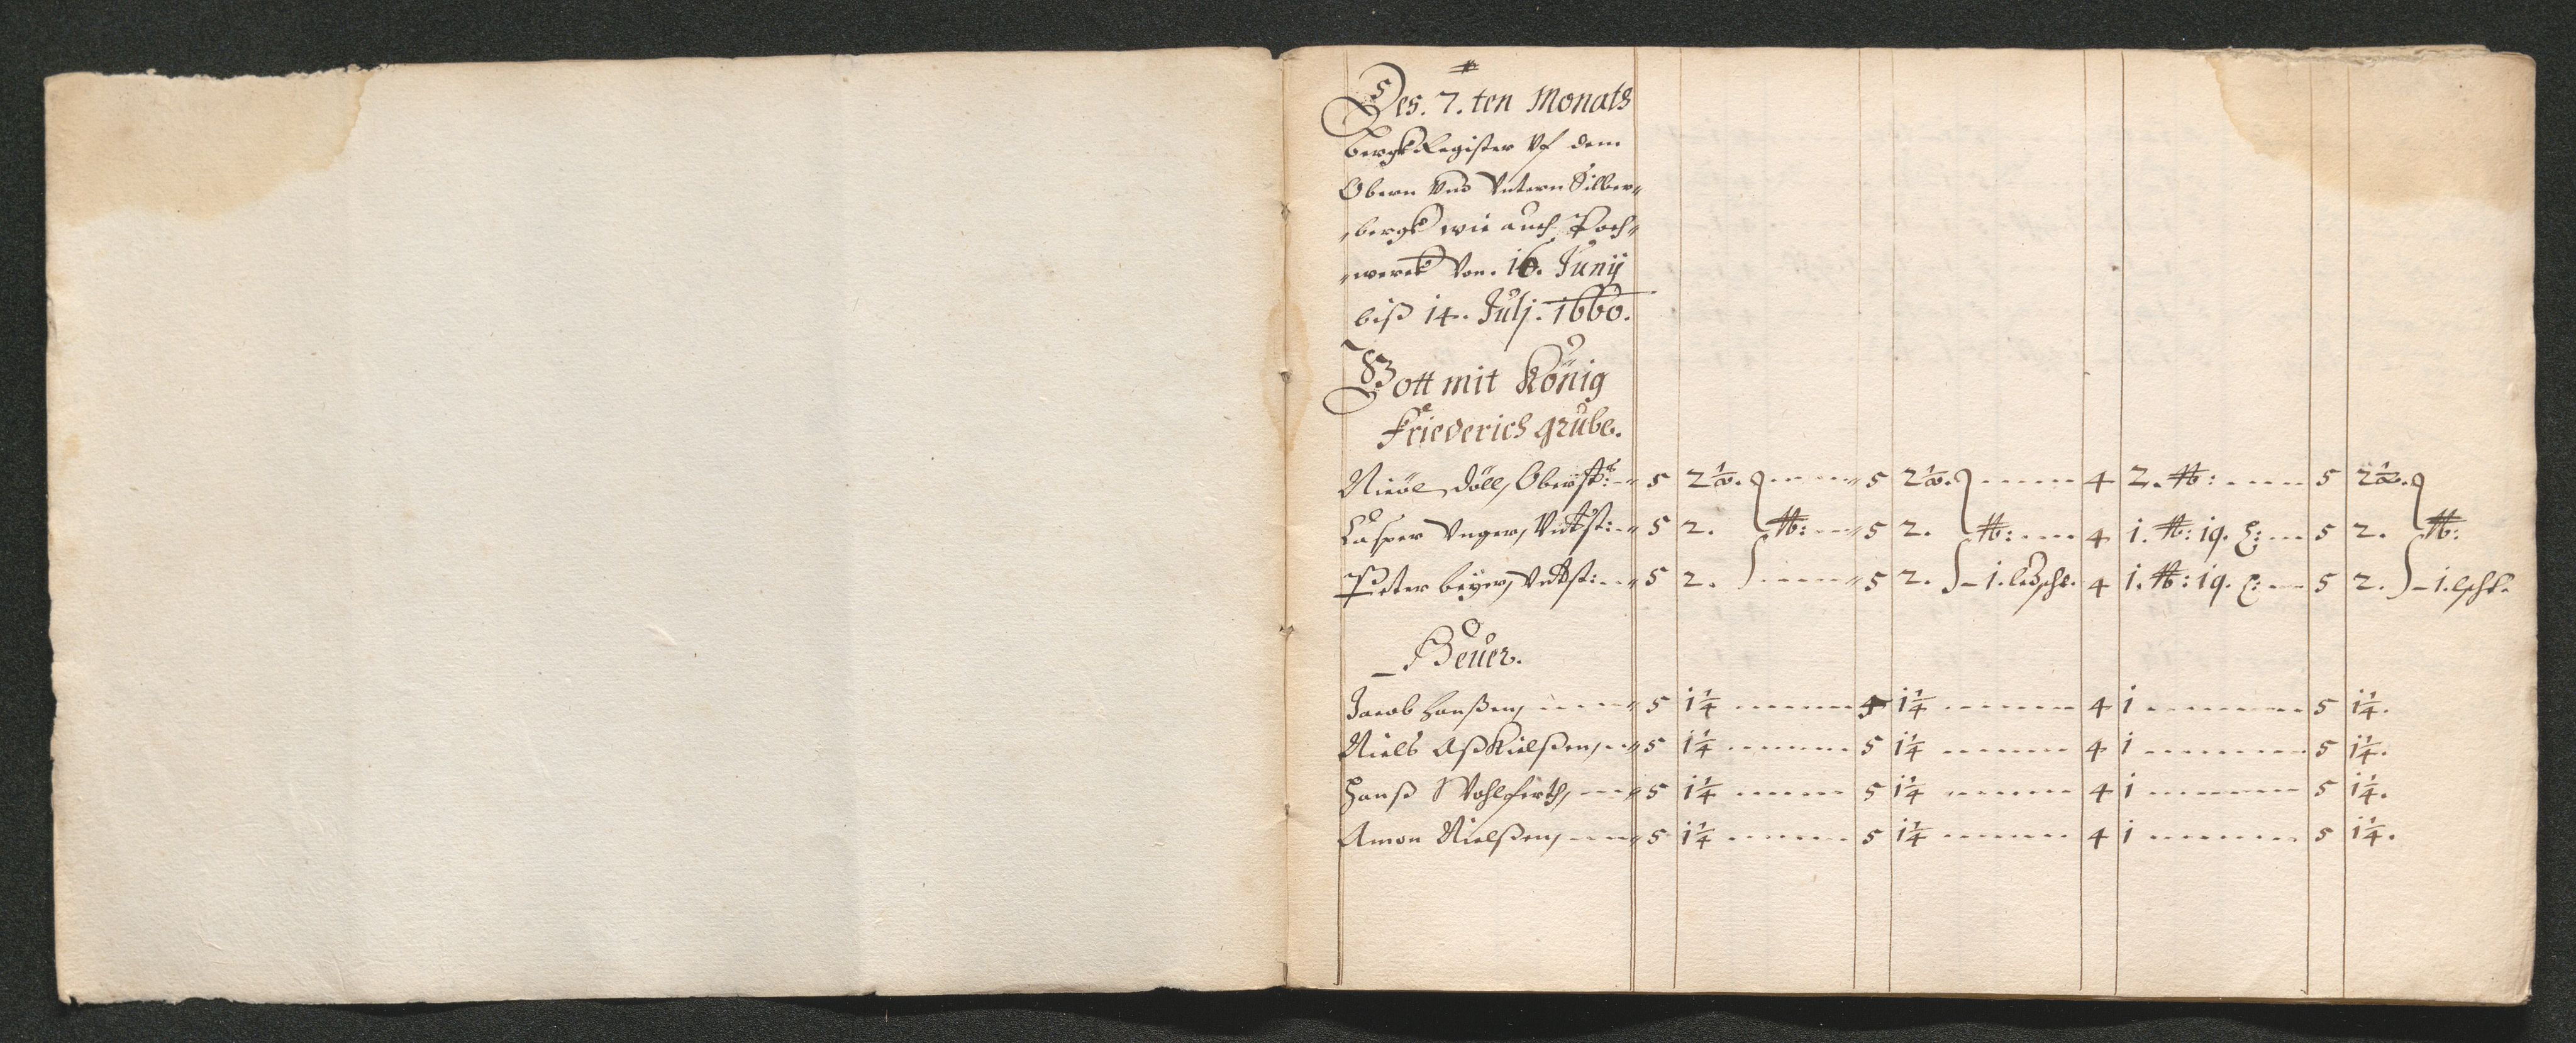 Des. 7. ten Monats
bergk Register Vf dem
Obern Vnd Vntern Silber„
„bergk wie auch Poch„
„werck Von. 16. Junij
biß 14. Julj. 1660.
Gott mit König
Friederich grube.
Nicol Döll, Oberst: 5 2½. 5 2½. 4 2. ℔: 5 2½.
Casper Unger, Vntst: 5 2. ℔: 5 2. ℔: 4 1. ℔: 19. 5 2. ℔:
Peter beyer, Vntst: 5 2. 5 2. 1. 4 1. ℔: 19. 5 2. 1.
Heuer.
Jacob Hanßen, 5 1¼ 5 1¼ 4 1 5 1¼.
Niels Aßkielßen, 5 1¼ 5 1¼ 4 1 5 1¼.
Hanß Wohlferth, 5 1¼ 5 1¼ 4 1 5 1¼.
Amon Nielßen, 5 1¼ 5 1¼ 4 1 5 1¼.